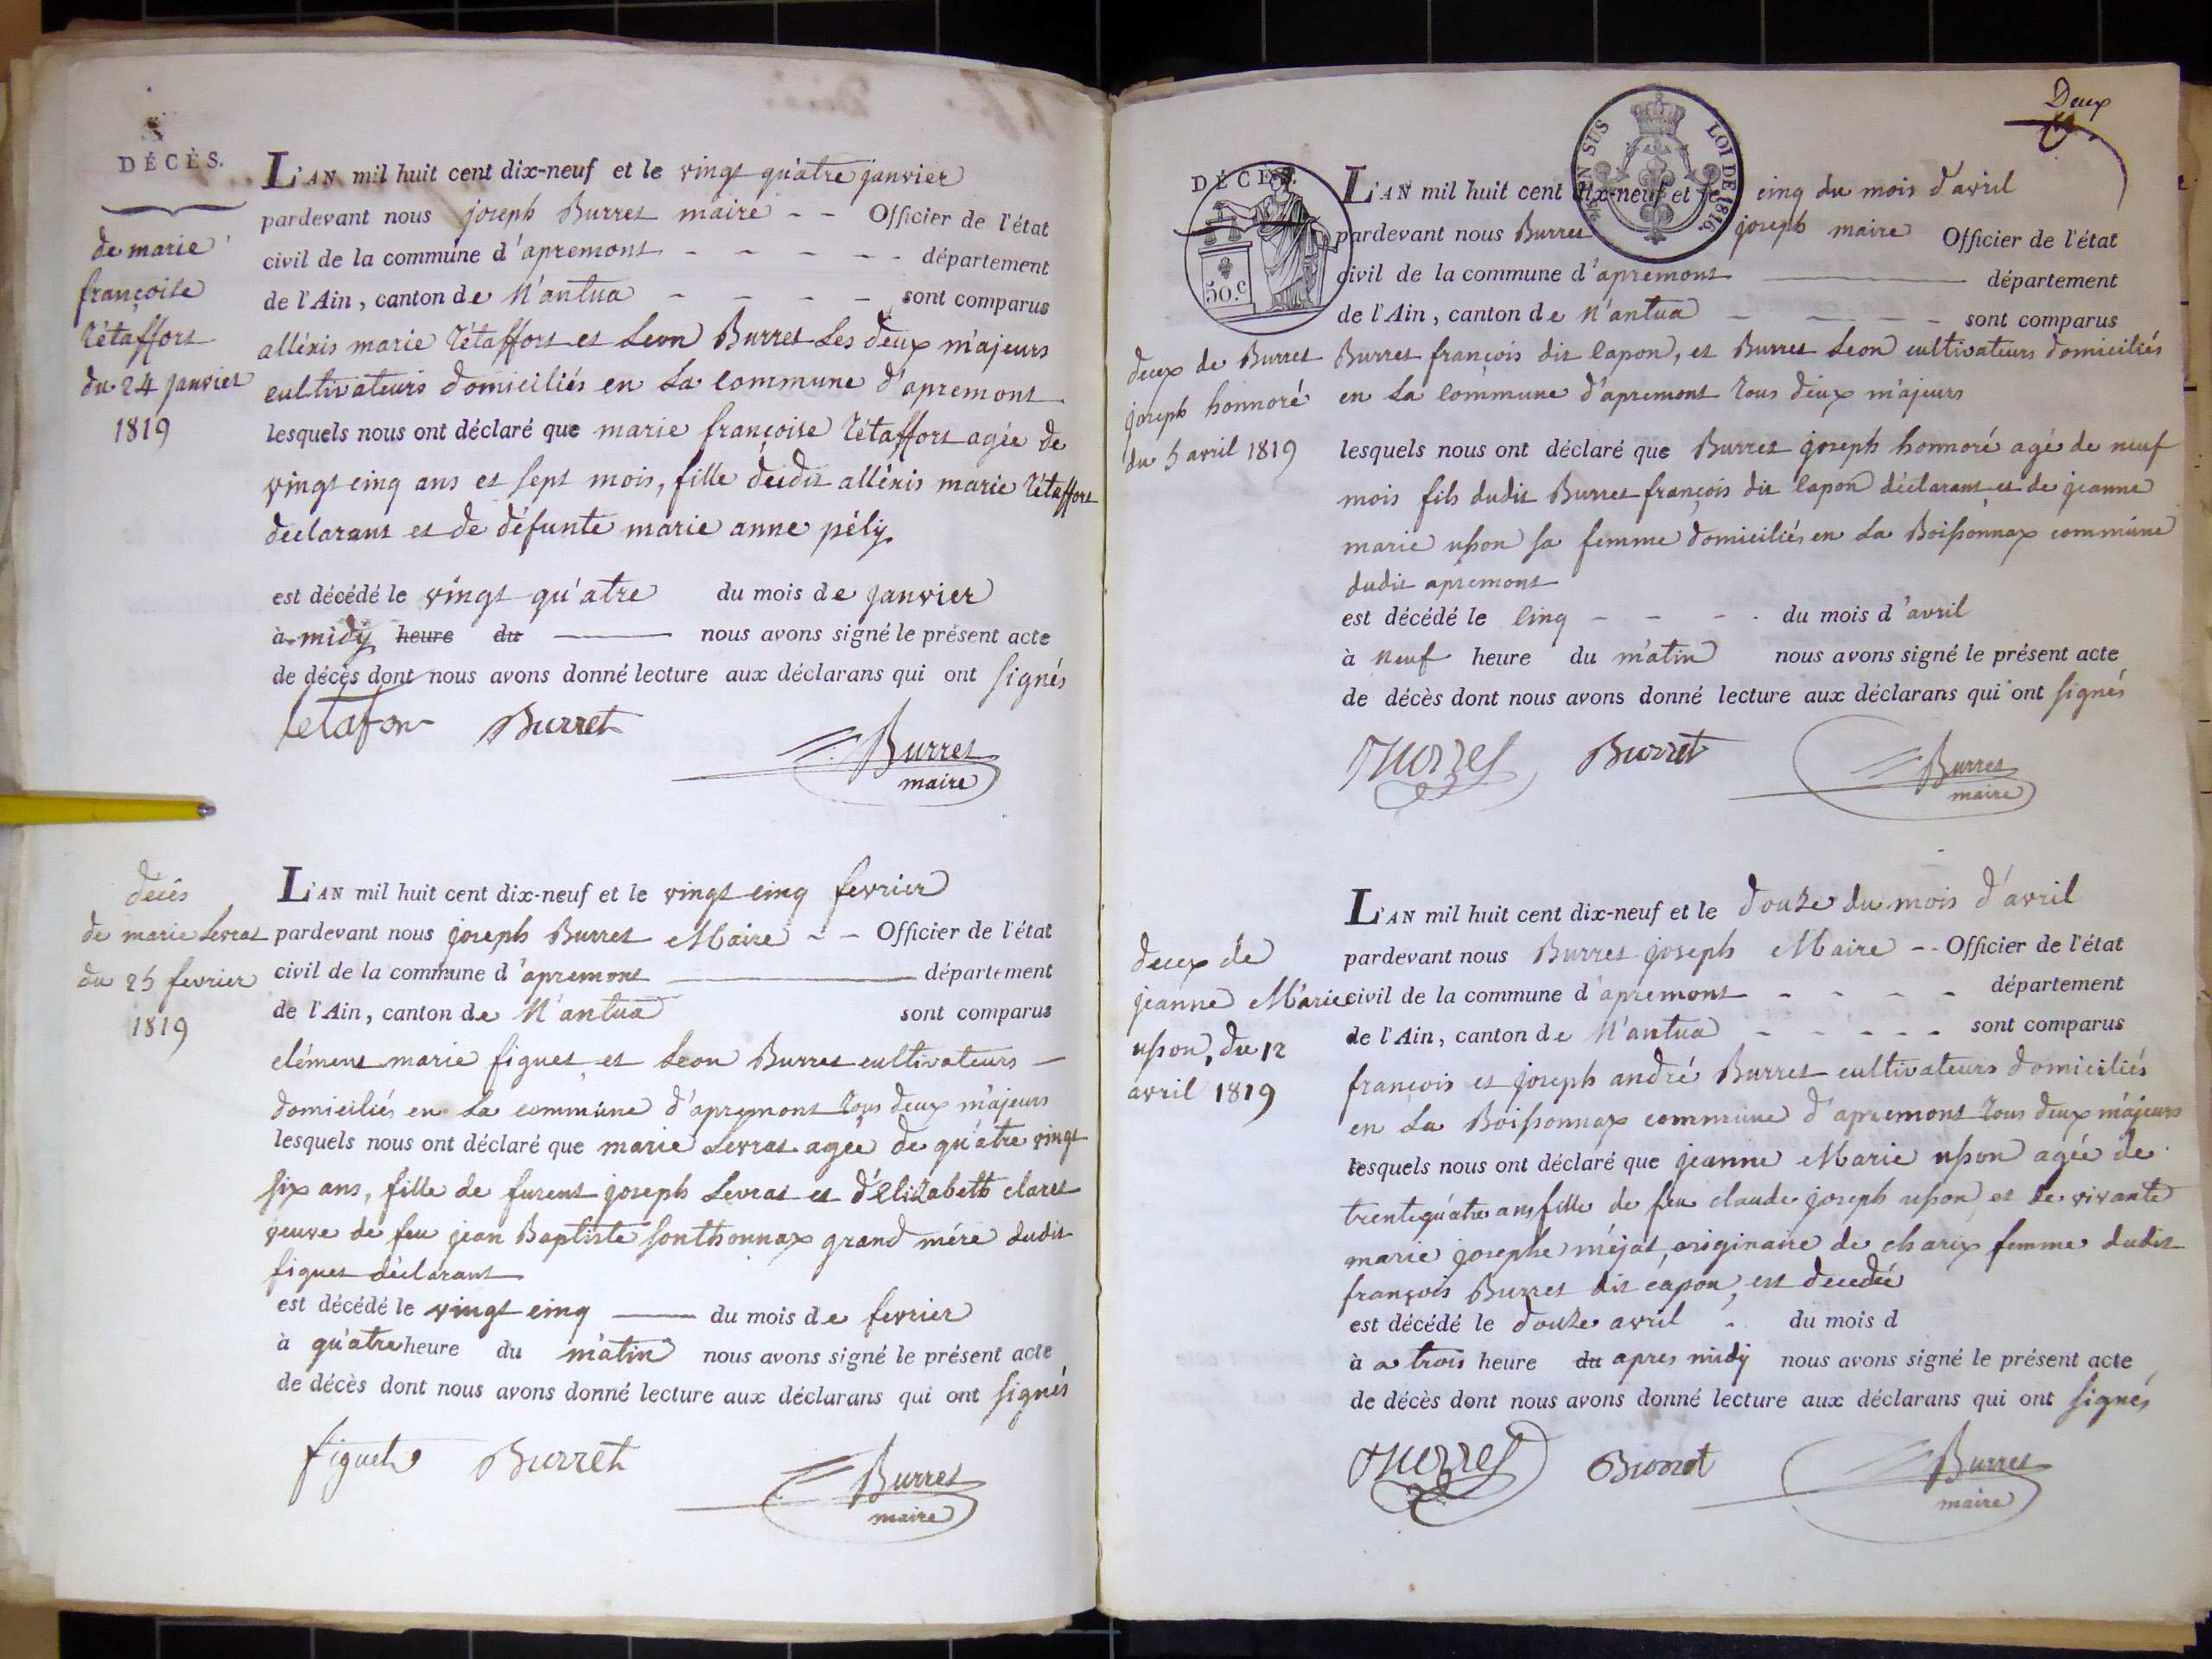 DÉCÈS.
de marie
françoise
Tétaffort
du 24 janvier
1819
L'AN mil huit cent dix-neuf et le vingt qu'atre janvier
pardevant nous joseph Burret maire - - Officier de l'état
civil de la commune d'apremont - - - - - département
de l'Ain, canton de N'antua - - - - sont comparus
alléxis marie Tétaffort et Leon Burret Les deux m'ajeurs
cultivateurs domiciliés en La commune d'apremont
lesquels nous ont déclaré que marie françoise Tétaffort agée de
vingt cinq ans et sept mois, fille dudit alléxis marie Tétaffort
declarant et de défunte marie anne pély.
est décédé le vingt qu'atre du mois de janvier
à midy heure du nous avons signé le présent acte
de décès dont nous avons donné lecture aux déclarans qui ont signés
Burret
Burret
maire
décès
de marie Levrat
du 25 fevrier
1819
L'AN mil huit cent dix-neuf et le vingt cinq fevrier
pardevant nous joseph Burret Maire - - Officier de l'état
civil de la commune d'apremont département
de l'Ain, canton de N'antua sont comparus
clément marie figuet et Leon Burret cultivateurs
domiciliés en La commune d'apremont Tous deux m'ajeurs
lesquels nous ont déclaré que marie Levrat agée de qu'atre vingt
six ans, fille de furent joseph Levrat et d'Elizabeth claret
veuve de feu jean Baptiste sonthonnax grand mére dudit
figuet déclarant
est décédé le vingt cinq du mois de fevrier
à qu'atre heure du m'atin nous avons signé le présent acte
de décès dont nous avons donné lecture aux déclarans qui ont signés
figuet Burret
Burret
maire
Deux
EN SUS LOI DE 1816.
DÉCÈS.
50.c
deux de Burret
joseph honnoré
du 5 avril 1819
L'AN mil huit cent dix-neuf et le cinq du mois d'avril
pardevant nous Burret joseph maire Officier de l'état
civil de la commune d'apremont département
de l'Ain, canton de N'antua - - - - sont comparus
Burret françois dit capon, et Burret Leon cultivateurs domiciliés
en La commune d'apremont Tous deux m'ajeurs
lesquels nous ont déclaré que Burret joseph honnoré agé de neuf
mois fils dudit Burret françois dit capon déclarant et de jeanne
marie upson sa femme domiciliés en La Boissonnax commune
dudit apremont
est décédé le Cinq - - - - du mois d'avril
à neuf heure du m'atin nous avons signé le présent acte
de décès dont nous avons donné lecture aux déclarans qui ont signés
Burret
Burret
maire
deux de
jeanne Marie
upson, du 12
avril 1819
L'AN mil huit cent dix-neuf et le douze du mois d'avril
pardevant nous Burret joseph Maire - - Officier de l'état
civil de la commune d'apremont - - - - département
de l'Ain, canton de N'antua - - - - - sont comparus
françois et joseph andré Burret cultivateurs domiciliés
en La Boissonnax commune d'apremont Tous deux m'ajeurs
lesquels nous ont déclaré que jeanne Marie upson agée de
trente qu'atre ans fille de feu claude joseph upson, et de vivante
marie josephe méjat, originaire de charix femme dudit
françois Burret dit capon, est decedée
est décédé le douze avril du mois d
à a trois heure du apres midy nous avons signé le présent acte
de décès dont nous avons donné lecture aux déclarans qui ont signés
Burret
Burret
maire